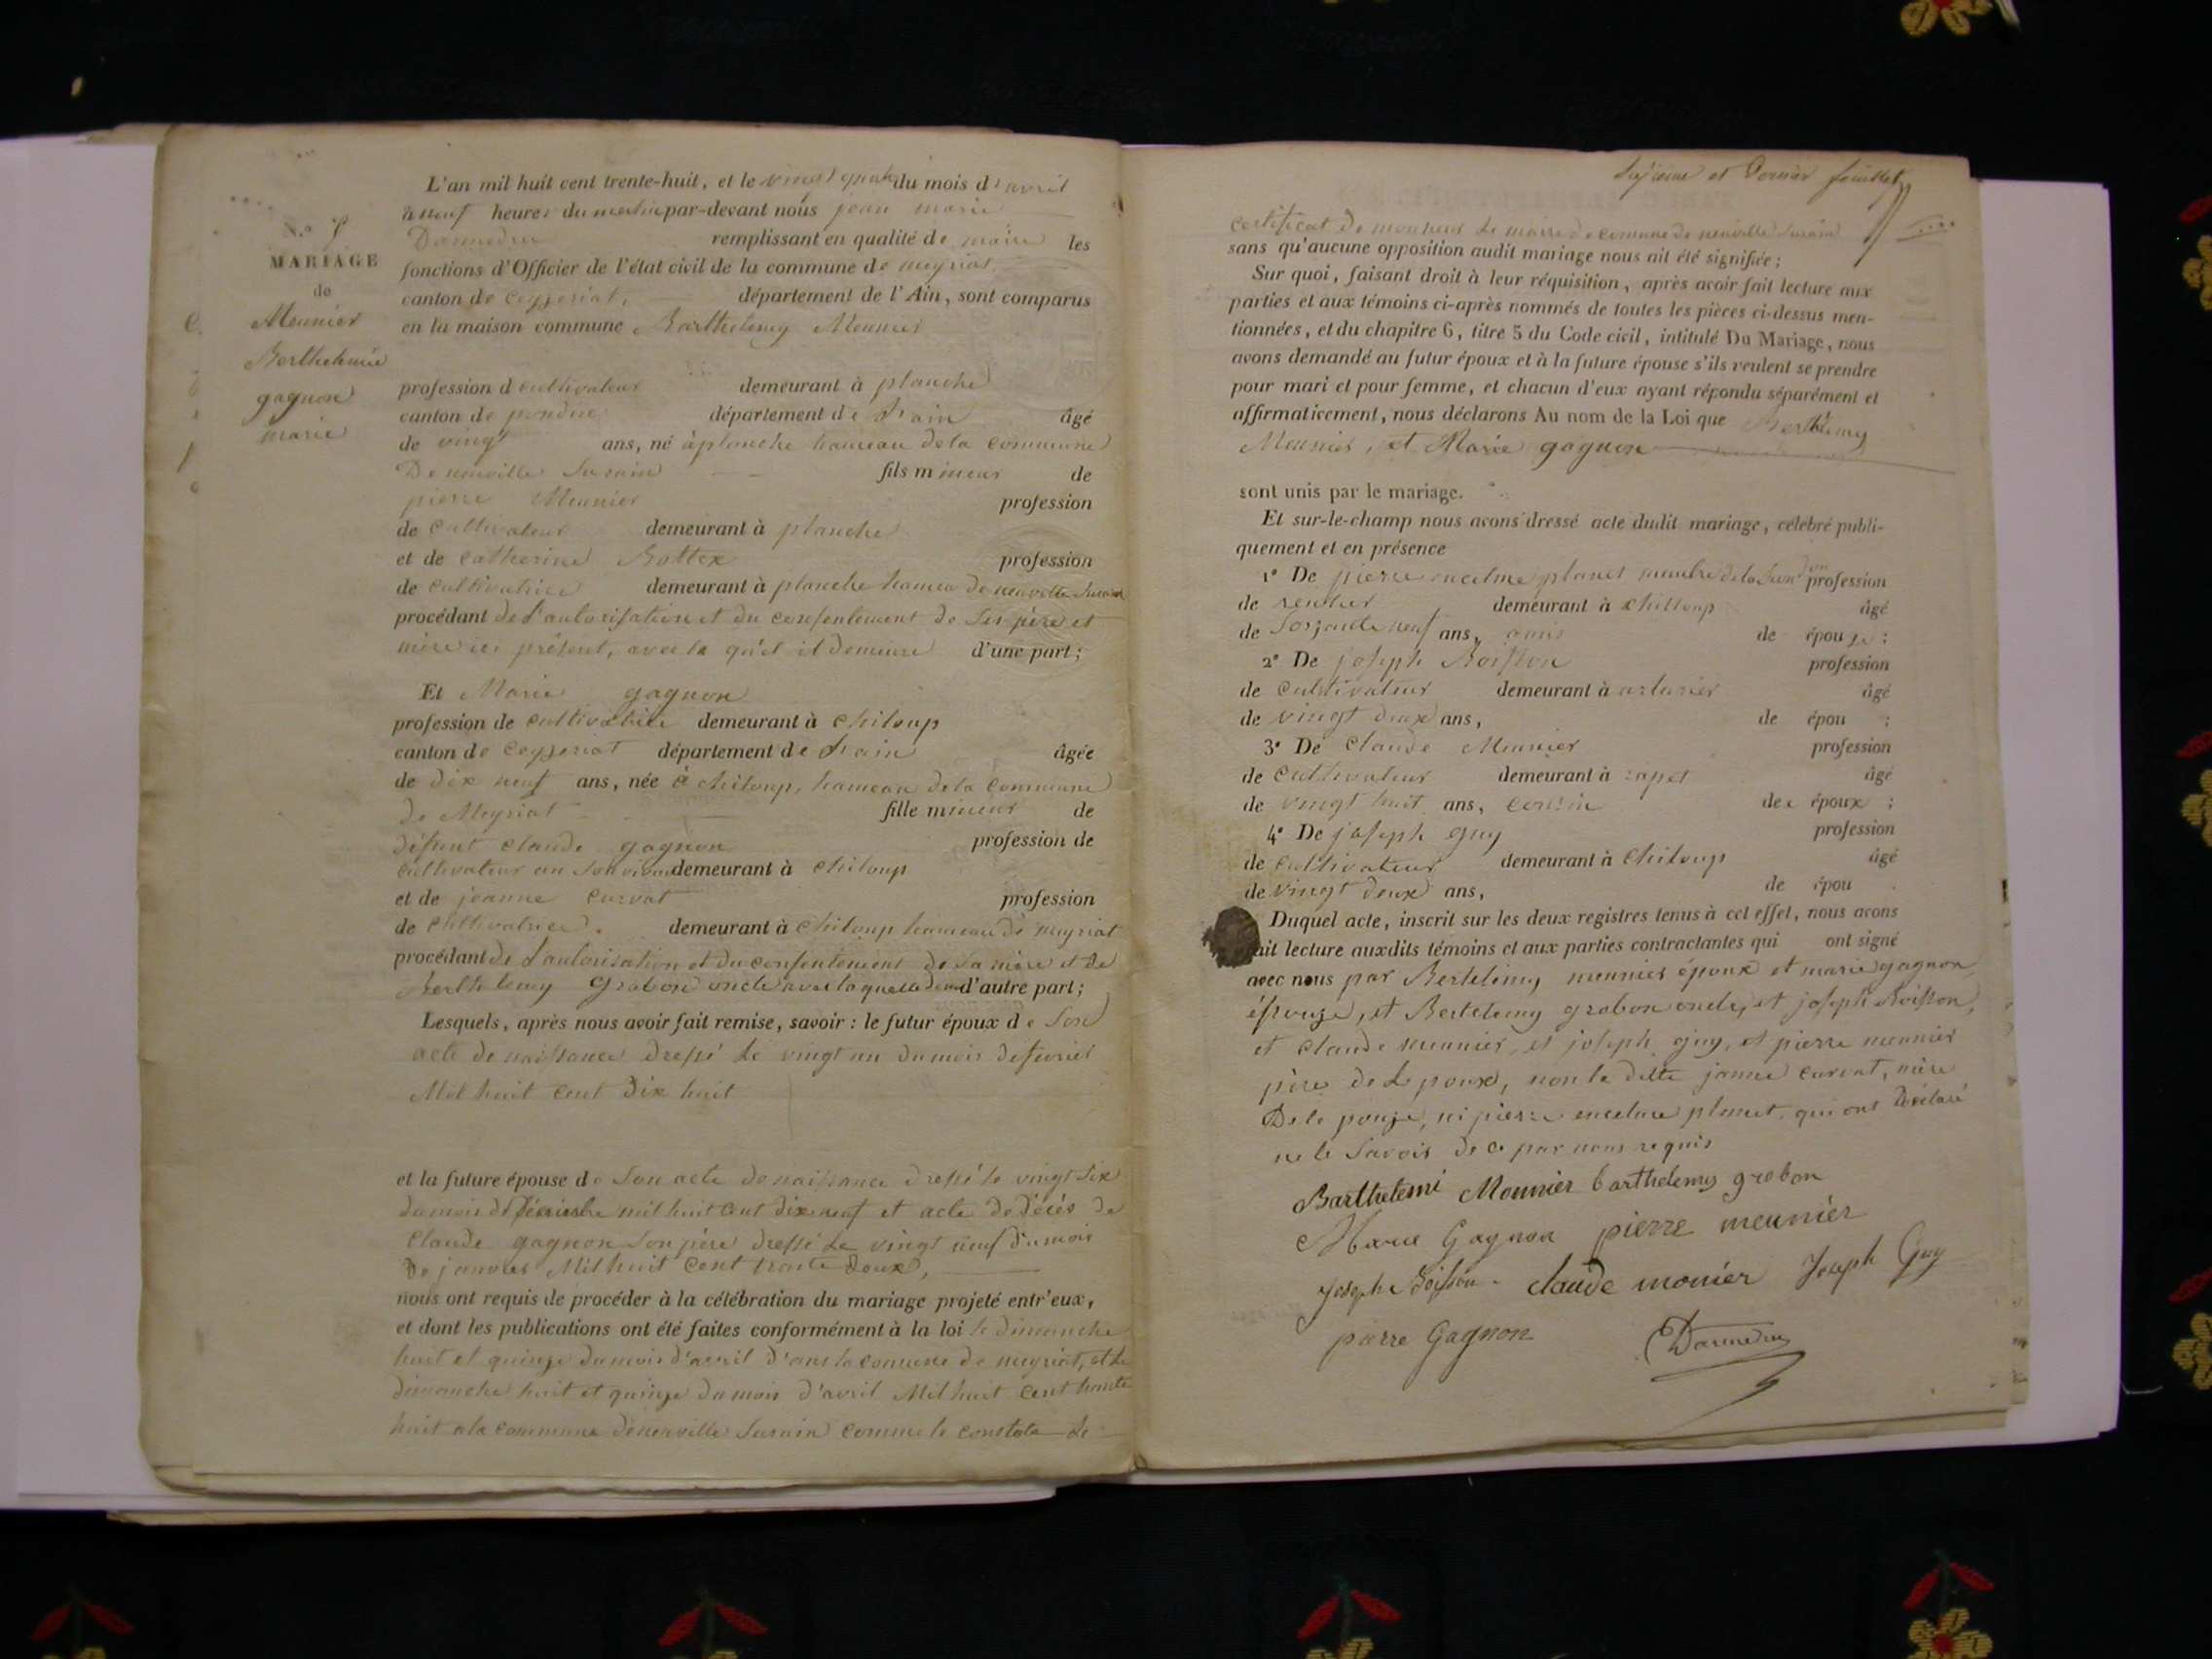 L'an mil huit cent trente-huit, et le vingt quatre du mois d'avril
à neuf heures du matin par-devant nous jean marie
remplissant en qualité de maire les
fonctions d'Officier de l'état civil de la commune de meyriat
canton de ceyzeriat, département de l'Ain, sont comparus
en la maison commune Barthelemy Meunier
N.°
MARIAGE
de
Meunier
Berthelemie
gagnon
marie
profession d cultivateur demeurant à planche
canton de département de Lain âgé
de vingt ans, né à planche hameau de la commune
De neuville surain fils mineur de
pierre Meunier profession
de cultivateur demeurant à planche
et de catherine Bottex profession
de cultivatrice demeurant à planche hameau de neuville surain
procédant de L'autorisation et du consentement de ses père et
mère ici présent, avec la qu'el il demeure d'une part;
Et Marie gagnon
profession de cultivatrice demeurant à chiloup
canton de ceyzeriat département de Lain âgée
de dix neuf ans, née à chiloup, hameau de la commune
de Meyriat fille mineur de
défunt claude gagnon profession de
cultivateur en son vivant demeurant à chiloup
et de jeanne curvat profession
de cultivatrice. demeurant à chiloup hameau de meyriat
procédant de L'autorisation et du consentement de sa mère et de
Berthelemy Grobon oncle avec laquelle d'autre part;
Lesquels, après nous avoir fait remise, savoir : le futur époux de son
acte de naissance dressé le vingt un du mois de fevrier
Mil huit cent dix huit
et la future épouse de son acte de naissance dressé le vingt six
du mois de mil huit cent dix neuf et acte de décès de
claude gagnon son père dressé Le vingt neuf du mois
de janvier Mil huit cent trante deux,
nous ont requis de procéder à la célébration du mariage projeté entr'eux,
et dont les publications ont été faites conformément à la loi le dimanche
huit et quinze du mois d'avril d'ans la comune de meyriat, et le
dimanche huit et quinze du mois d'avril Mil huit cent trante
huit a la commune de neuville surain comme le constate le
et Dernier feuillet
certificat de monsieur le maire de comune de neuville surain
sans qu'aucune opposition audit mariage nous ait été signifiée;
Sur quoi, faisant droit à leur réquisition, après avoir fait lecture aux
parties et aux témoins ci-après nommés de toutes les pièces ci-dessus men-
tionnées, et du chapitre 6, titre 5 du Code civil, intitulé Du Mariage, nous
avons demandé au futur époux et à la future épouse s'ils veulent se prendre
pour mari et pour femme, et chacun d'eux ayant répondu séparément et
affirmativement, nous déclarons Au nom de la Loi que Berthlemy
Meunier, et Marie gagnon
sont unis par le mariage.
Et sur-le-champ nous avons dressé acte dudit mariage, célébré publi-
quement et en présence
1° De pierre encelme planet profession
de rentier demeurant à chilloup âgé
de ans, amis de épouze ;
2° De joseph Boisson profession
de cultivateur demeurant à âgé
de vingt deux ans, de épou ;
3° De claude Meunier profession
de cultivateur demeurant à rapet âgé
de vingt huit ans, cousin de époux ;
4° De joseph guy profession
de cultivateur demeurant à chiloup âgé
de vingt deux ans, de épou
Duquel acte, inscrit sur les deux registres tenus à cet effet, nous avons
fait lecture auxdits témoins et aux parties contractantes qui ont signé
avec nous par Bertelemy meunier époux et marie gagnon
épouze, et Bertelemy grobon oncle, et joseph Boisson,
et claude meunier, et joseph guy, et pierre meunier
père de Lepoux, non la ditte jeanne curvat, mère
De le pouze, ni pierre encelme planet, qui ont Déclaré
ne le savoir de ce par nous requis
Barthelemi Mounier barthelemy grobon
Marie Gagnon pierre meunier
Joseph Boisson claude monier Joseph Guy
pierre Gagnon